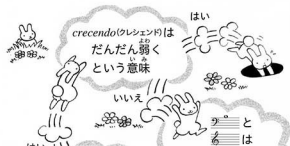 はい
crecendo(クレシェンド)は
だんだん弱く
よわ
という意味
いみ
いいえ
と
は